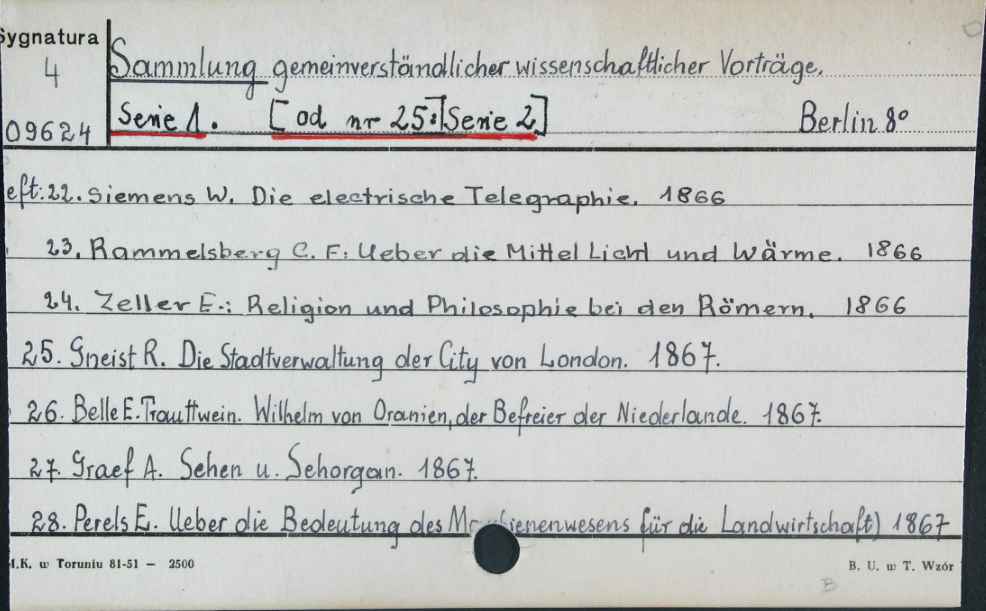 Sygnatura
4
09624
Sammlung gemeinverständlicher wissenschaftlicher Vorträge.
Serie 1. [od nr 25:][Serie 2] Berlin 8°
eft: 22. Siemens W. Die electrische Telegraphie. 1866
23. Rammelsberg C. F: Ueber die Mittel Licht und Wärme. 1866
24. Zeller E.: Religion und Philosophie bei den Römern. 1866
25. Gneist R. Die Stadtverwaltung der City von London. 1867.
26. Belle E. Trauttwein. Wilhelm von Oranien, der Befreier der Niederlande. 1867.
27. Graef A. Sehen u. Sehorgan. 1867.
28. Perels E. Ueber die Bedeutung des für die Landwirtschaft) 1867
I.K. w Toruniu 81-51 — 2500
B. U. w T. Wzór
B